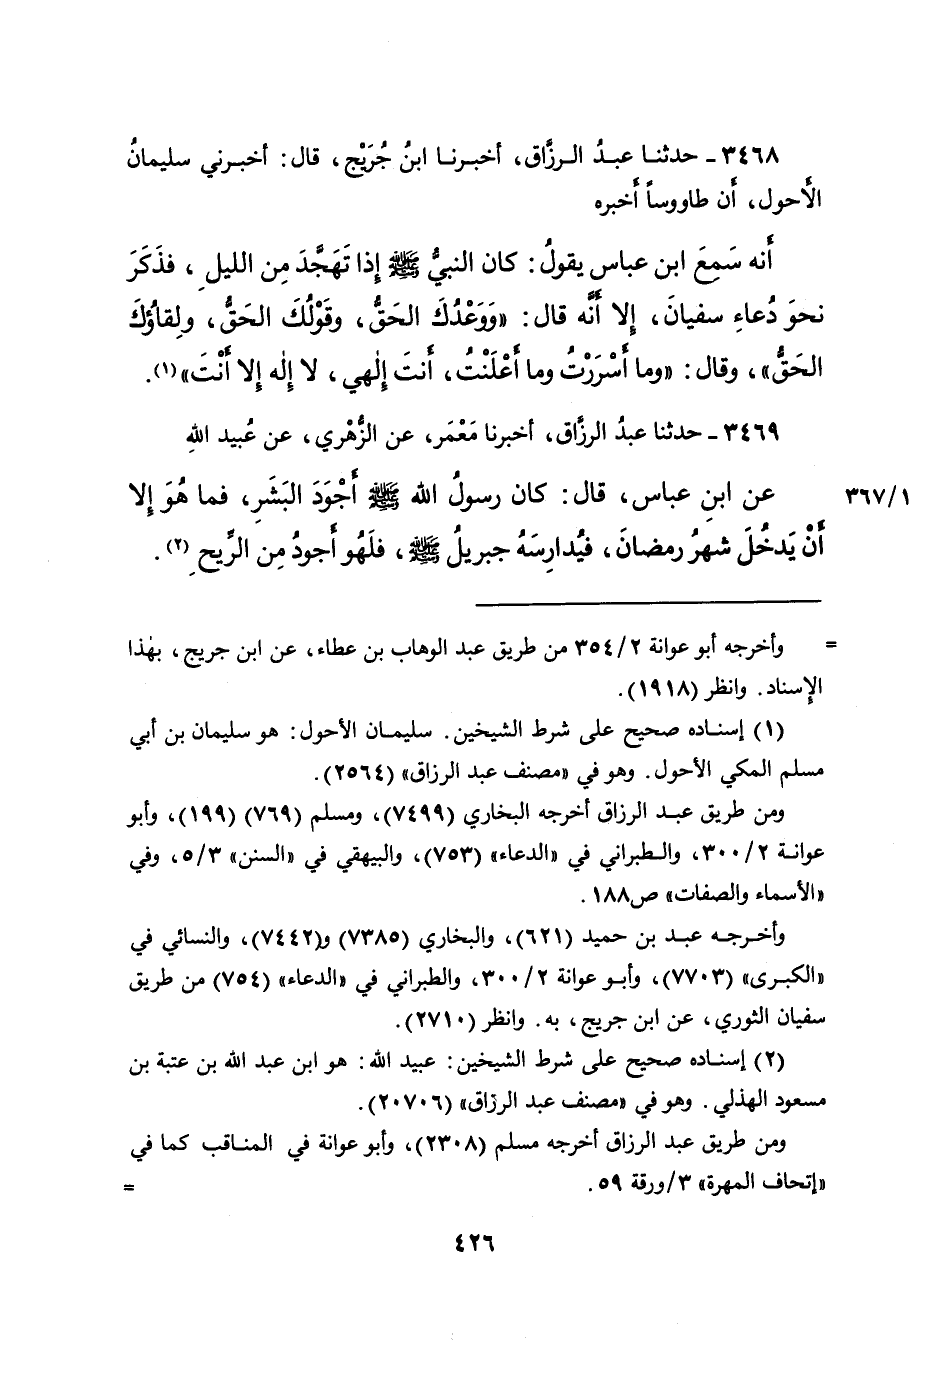 ٣٤٦٨ ـ حدثنـا عبـدُ الـرزَّاق، أخبـرنـا ابنُ جُرَيْج، قال: أخبـرني سليمانُ
الأَحول، أَن طاووساً أَخبره
أَنه سَمِعَ ابن عباس يقولُ: كان النبيُّ ﷺ إِذا تَهَجَّدَ مِن الليل، فذَكَرَ
نحوَ دُعاءِ سفيانَ، إِلا أَنَّه قال: «وَوَعْدُكَ الحَقُّ، وقَوْلُكَ الحَقُّ، ولِقاؤُكَ
الحَقُّ»، وقال: «وما أَسْرَرْتُ وما أَعْلَنْتُ، أَنتَ إِلٰهي، لا إِلٰه إِلا أَنْتَ»(١).
٣٤٦٩ ـ حدثنا عبدُ الرزَّاق، أخبرنا مَعْمَر، عن الزُّهْري، عن عُبيد اللهِ
٣٦٧/١ عن ابنِ عباس، قال: كان رسولُ الله ﷺ أَجْوَدَ البَشَرِ، فما هُوَ إِلا
أَنْ يَدخُلَ شهرُ رمضانَ، فيُدارِسَهُ جبريلُ ﷺ، فلَهُو أَجودُ مِن الرِّيحِ(٢).
= وأخرجه أبو عوانة ٣٥٤/٢ من طريق عبد الوهاب بن عطاء، عن ابن جريج، بهٰذا
الإِسناد. وانظر (١٩١٨).
(١) إسنـاده صحيح على شرط الشيخين. سليمـان الأحول: هو سليمان بن أبي
مسلم المكي الأحول. وهو في «مصنف عبد الرزاق» (٢٥٦٤).
ومن طريق عبـد الرزاق أخرجه البخاري (٧٤٩٩)، ومسلم (٧٦٩) (١٩٩)، وأبو
عوانـة ٣٠٠/٢، والـطبراني في «الدعاء» (٧٥٣)، والبيهقي في «السنن» ٥/٣، وفي
«الأسماء والصفات» ص١٨٨.
وأخـرجـه عبـد بن حميد (٦٢١)، والبخاري (٧٣٨٥) و(٧٤٤٢)، والنسائي في
«الكبـرى» (٧٧٠٣)، وأبـو عوانة ٣٠٠/٢، والطبراني في «الدعاء» (٧٥٤) من طريق
سفيان الثوري، عن ابن جريج، به. وانظر (٢٧١٠).
(٢) إسنـاده صحيح على شرط الشيخين: عبيد الله: هو ابن عبد الله بن عتبة بن
مسعود الهذلي. وهو في «مصنف عبد الرزاق» (٢٠٧٠٦).
ومن طريق عبد الرزاق أخرجه مسلم (٢٣٠٨)، وأبو عوانة في المناقب كما في
«إتحاف المهرة» ٣/ورقة ٥٩. =
٤٢٦